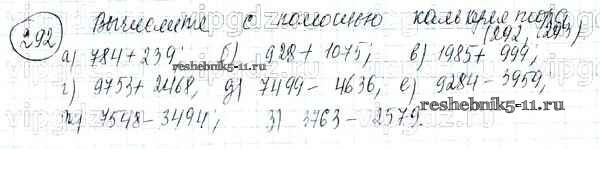 292 Вычислите с помощью калькулятора (292, 293).
а) 784 + 239; б) 928 + 1075; в) 1985 + 999;
г) 9753 + 2468; д) 7499 - 4636; е) 9284 - 3959;
ж) 7548 - 3494; з) 3763 - 2579.
reshebnik5-11.ru
reshebnik5-11.ru